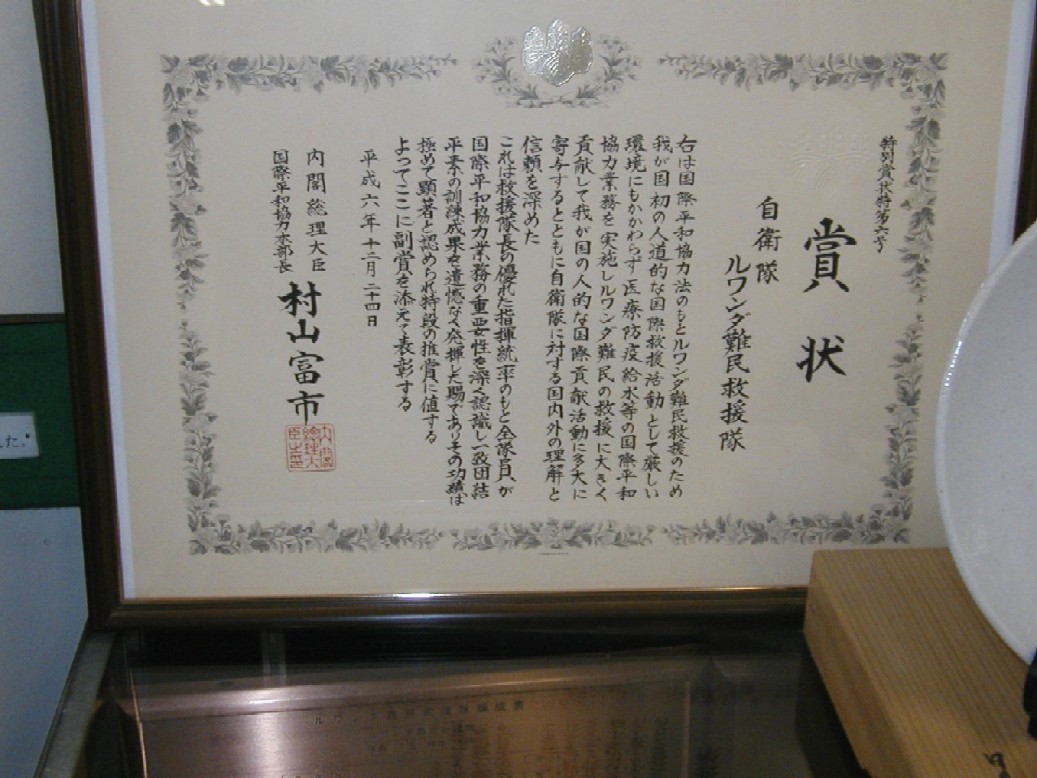 特別賞状特第六号
賞状
自衛隊
ルワンダ難民救援隊
右は国際平和協力法のもとルワンダ難民救援のため
我が国初の人道的な国際救援活動として厳しい
環境にもかかわらず医療防疫給水等の国際平和
協力業務を実施しルワンダ難民の救援に大きく
貢献して我が国の人的な国際貢献活動に多大に
寄与するとともに自衛隊に対する国内外の理解と
信頼を深めた
これは救援隊長の優れた指揮統率のもと全隊員が
国際平和協力業務の重要性を深く認識し一致団結
平素の訓練成果を遺憾なく発揮した賜でありその功績は
極めて顕著と認められ特段の推賞に値する
よってここに副賞を添えて表彰する
平成六年十二月二十四日
内閣総理大臣
国際平和協力本部長
村山富市
内閣総理大臣之印
れた。